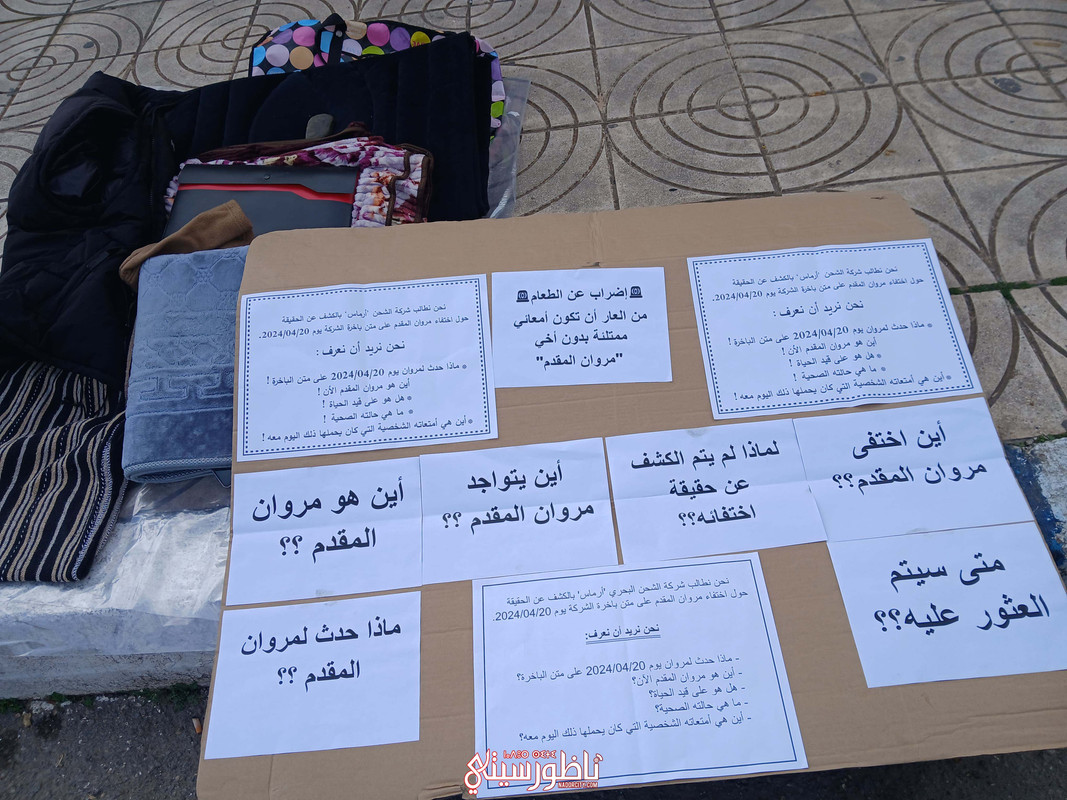 نحن نطالب شركة الشحن "أرماس" بالكشف عن الحقيقة
حول اختفاء مروان المقدم على متن باخرة الشركة يوم 2024/04/20.
نحن نريد أن نعرف :
* ماذا حدث لمروان يوم 2024/04/20 على متن الباخرة !
أين هو مروان المقدم الأن !
* هل هو على قيد الحياة !
* ما هي حالته الصحية !
* أين هي أمتعاته الشخصية التي كان يحملها ذلك اليوم معه !
🚨إضراب عن الطعام🚨
من العار أن تكون أمعائي
ممتلئة بدون أخي
"مروان المقدم"
نحن نطالب شركة الشحن "أرماس" بالكشف عن الحقيقة
حول اختفاء مروان المقدم على متن باخرة الشركة يوم 2024/04/20.
نحن نريد أن نعرف :
* ماذا حدث لمروان يوم 2024/04/20 على متن الباخرة !
أين هو مروان المقدم الأن !
* هل هو على قيد الحياة !
* ما هي حالته الصحية !
* أين هي أمتعاته الشخصية التي كان يحملها ذلك اليوم معه !
أين اختفى
مروان المقدم؟؟
لماذا لم يتم الكشف
عن حقيقة
اختفائه؟؟
أين يتواجد
مروان المقدم ؟؟
أين هو مروان
المقدم ؟؟
متى سيتم
العثور عليه؟؟
نحن نطالب شركة الشحن البحري "أرماس" بالكشف عن الحقيقة
حول اختفاء مروان المقدم على متن باخرة الشركة يوم 2024/04/20.
نحن نريد أن نعرف:
- ماذا حدث لمروان يوم 2024/04/20 على متن الباخرة؟
- أين هو مروان المقدم الأن؟
- هل هو على قيد الحياة؟
- ما هي حالته الصحية؟
- أين هي أمتعاته الشخصية التي كان يحملها ذلك اليوم معه؟
ماذا حدث لمروان
المقدم ؟؟
ناظورسيتي
NADORCITY.COM